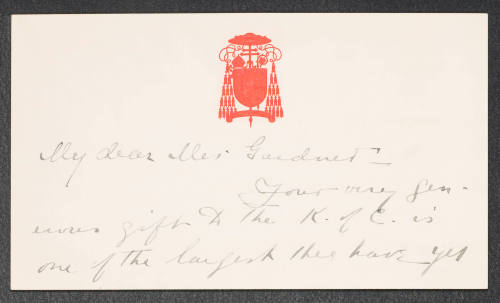 My dear Mrs Gardner –
Your very gen-
erous gift to the K. of C. is
one of the largest they have yet